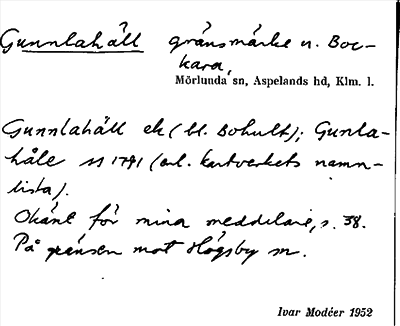 Gunnlahäll gränsmärke n. Boc-
kara,
Mörlunda sn, Aspelands hd, Klm. l.
Gunnlahäll ek (bl. Bohult); Gunla-
håle 1791 (enl. kartverkets namn-
lista).
Okänt för mina meddelare, s. 38.
På gränsen mot Högsby sn.
Ivar Modéer 1952